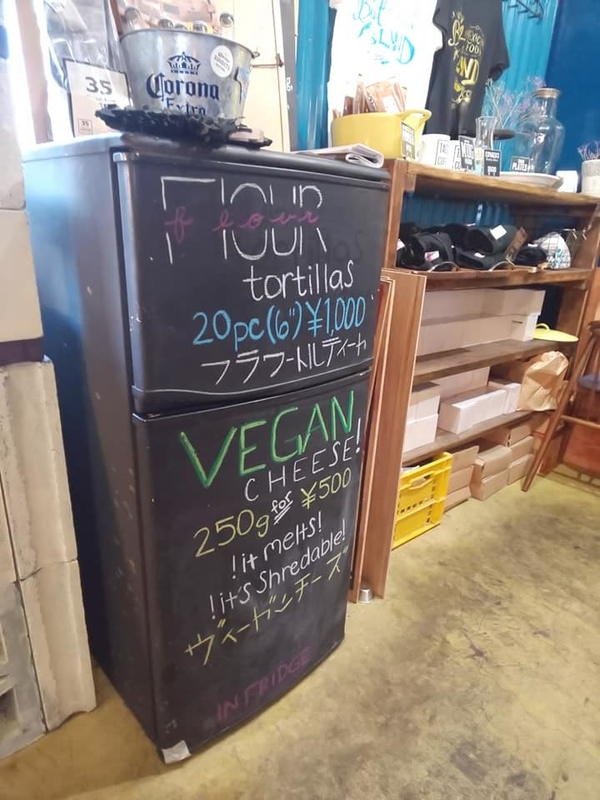 Corona
Extra
35
FlOUR
flour
tortillas
20pc(6") ¥1,000
フラワートルティーヤ
VEGAN
CHEESE!
250g for ¥500
!it melts!
!it's Shredable!
ヴィーガンチーズ
IN FRIDGE